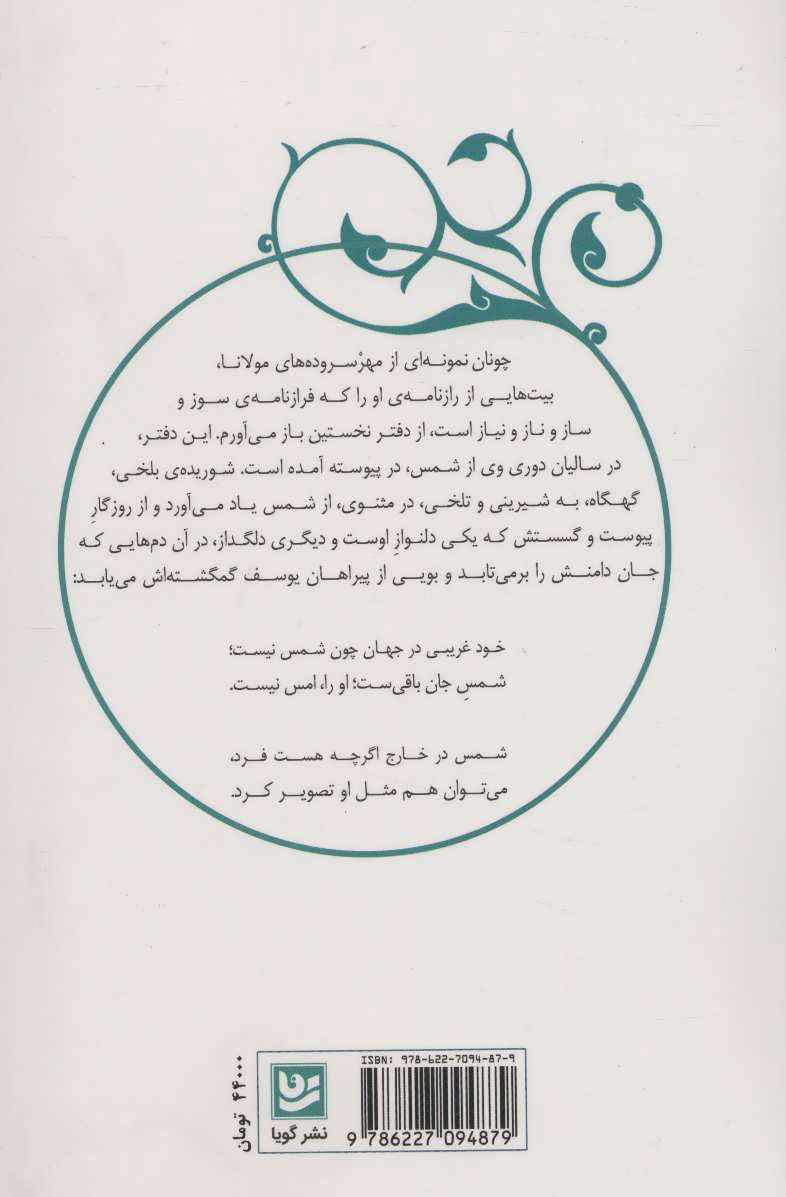 چونان نمونه‌ای از مهرْسروده‌های مولانا،
بیت‌هایی از رازنامه‌ی او را که فرازنامه‌ی سوز و
ساز و ناز و نیاز است، از دفتر نخستین باز می‌آورم. این دفتر،
در سالیان دوری وی از شمس، در پیوسته آمده است. شوریده‌ی بلخی،
گهگاه، به شیرینی و تلخی، در مثنوی، از شمس یاد می‌آورد و از روزگارِ
پیوست و گسستش که یکی دلنوازِ اوست و دیگری دلگداز، در آن دم‌هایی که
جان دامنش را برمی‌تابد و بویی از پیراهان یوسف گمگشته‌اش می‌یابد:
خود غریبی در جهان چون شمس نیست؛
شمسِ جان باقی‌ست؛ او را، امس نیست.
شمس در خارج اگرچه هست فرد،
می‌توان هم مثل او تصویر کرد.
ISBN: 978-622-7094-87-9
9 786227 094879
نشر گویا
۴۴۰۰۰ تومان